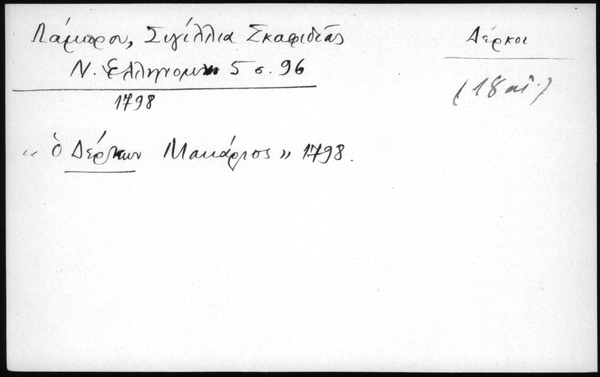 Λάμπρου, Σιγίλλια Σκαφιδιᾶς
Ν. Ἑλληνομν 5 σ. 96
1798
Δέρκοι
(18 αἰ.)
„ ὁ Δέρκων Μακάριος" 1798.